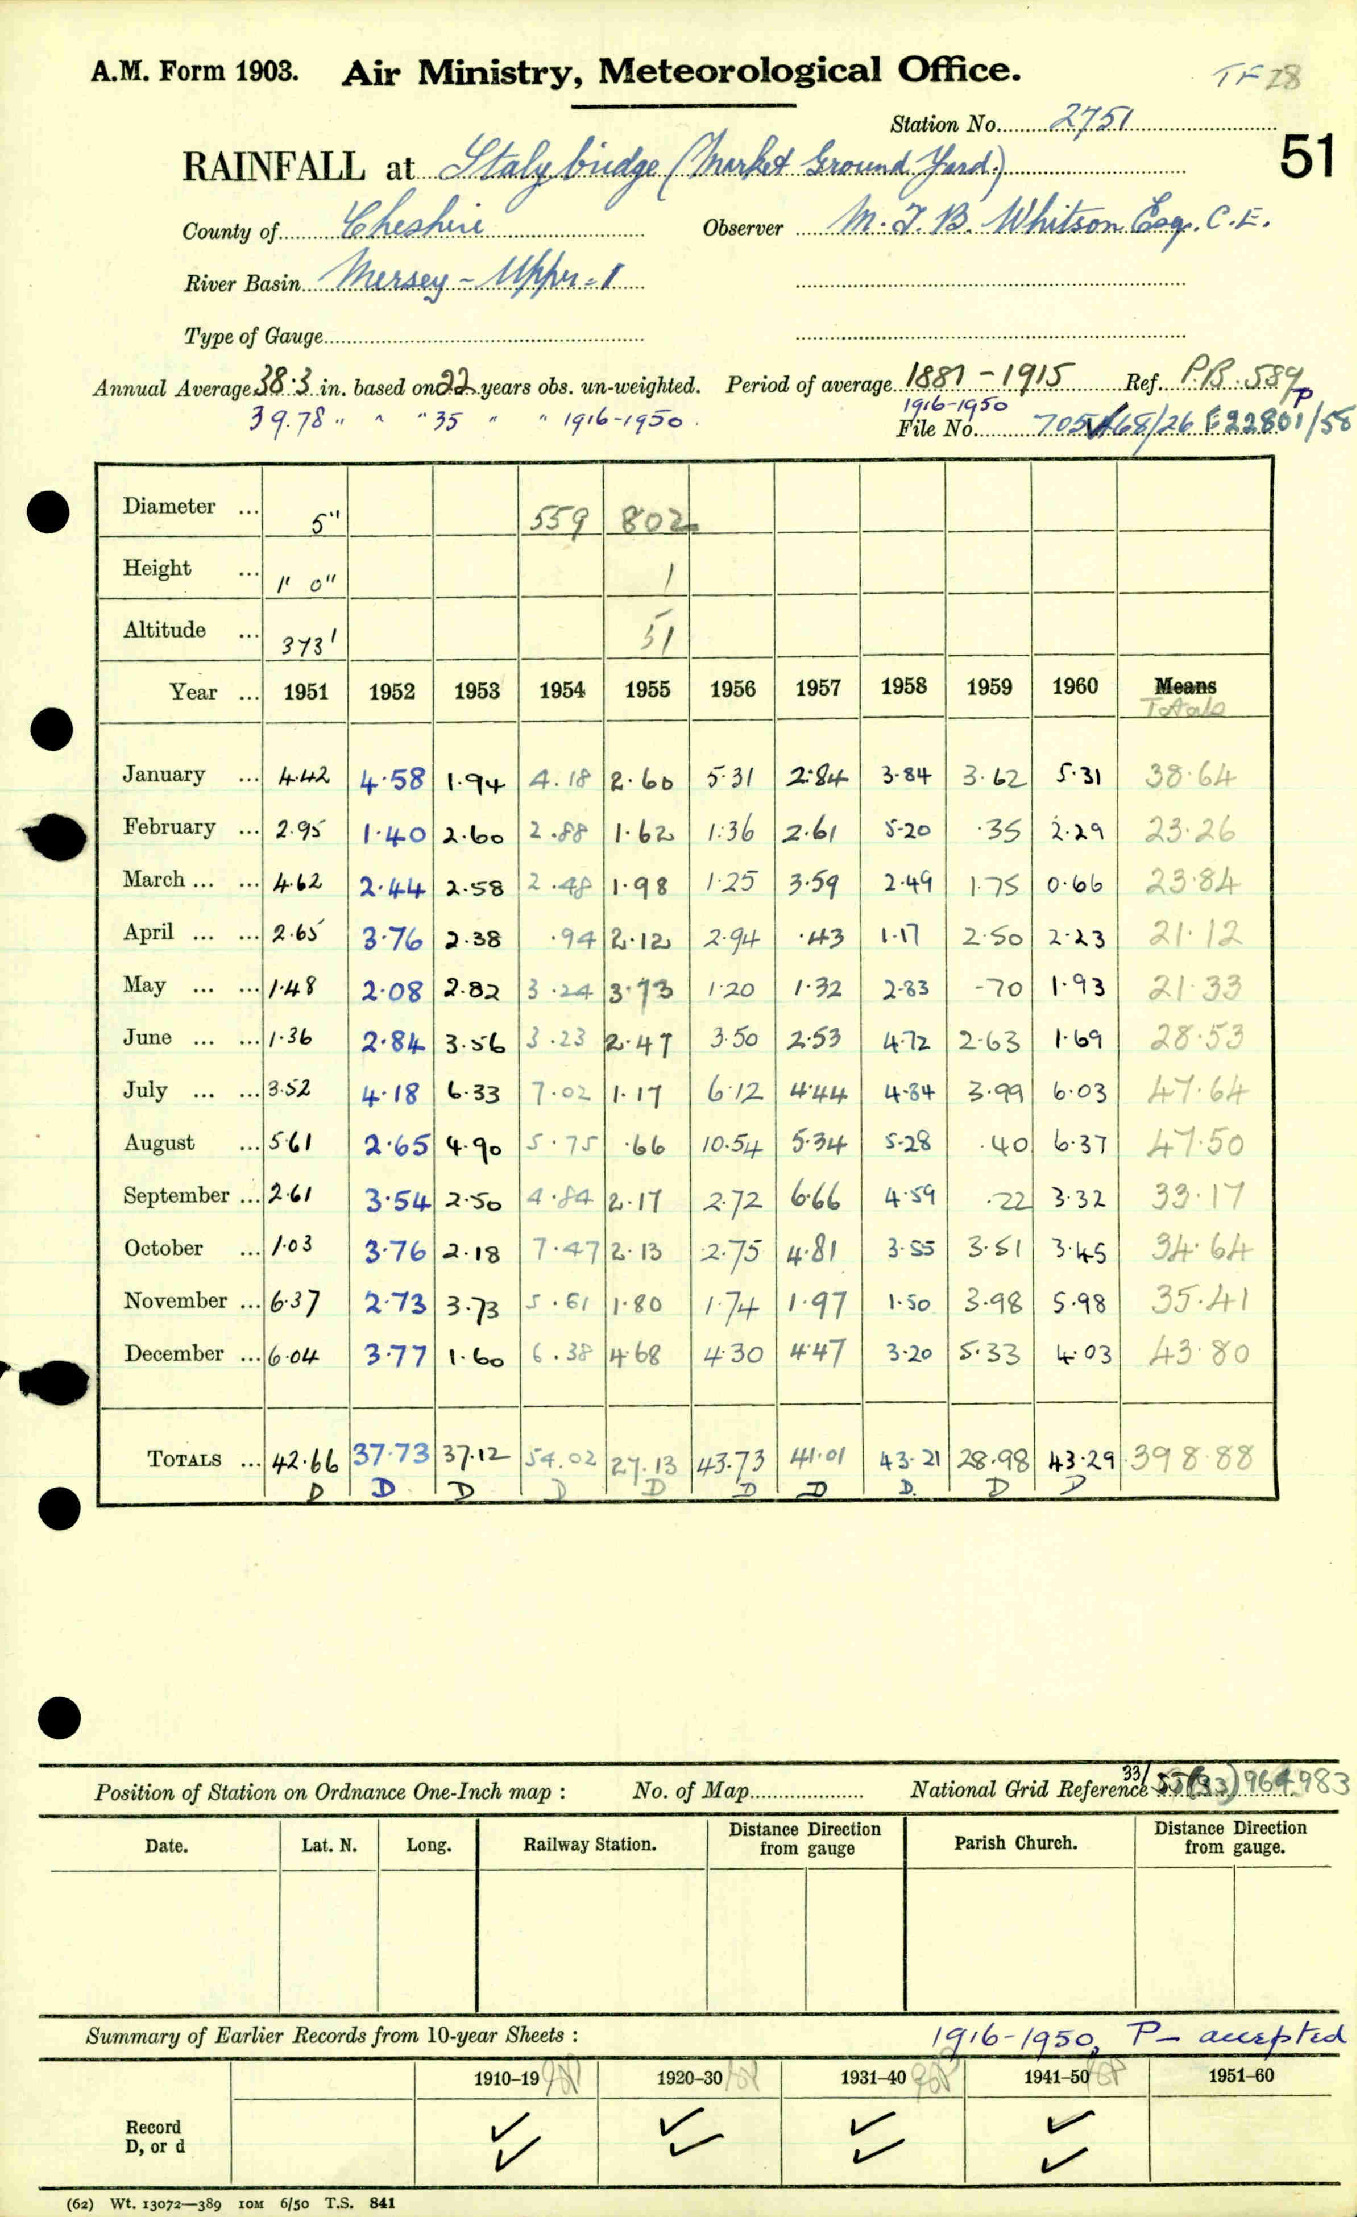 A.M. Form 1903. Air Ministry, Meteorological Office. TF 28
Station No. 2751
51
RAINFALL at Stalybridge (Market Ground Yard.)
County of Cheshire Observer M. J. B. Whitson Esq. C.E.
River Basin Mersey - Upper - 1
Type of Gauge
Annual Average 38.3 in. based on 22 years obs. un-weighted. Period of average 1881-1915 Ref. P.B. 589
39.78 " " " 35 " " 1916-1950. 1916-1950
File No.
Diameter ... 5" 559 802
Height ... 1' 0" 1
Altitude ... 373' 51
Year ... 1951 1952 1953 1954 1955 1956 1957 1958 1959 1960 Means
Totals
January ... 4.42 4.58 1.94 4.18 2.60 5.31 2.84 3.84 3.62 5.31 38.64
February ... 2.95 1.40 2.60 2.88 1.62 1.36 2.61 5.20 .35 2.29 23.26
March ... ... 4.62 2.44 2.58 2.48 1.98 1.25 3.59 2.49 1.75 0.66 23.84
April ... ... 2.65 3.76 2.38 .94 2.12 2.94 .43 1.17 2.50 2.23 21.12
May ... ... 1.48 2.08 2.82 3.24 3.73 1.20 1.32 2.83 .70 1.93 21.33
June ... ... 1.36 2.84 3.56 3.23 2.47 3.50 2.53 4.72 2.63 1.69 28.53
July ... ... 3.52 4.18 6.33 7.02 1.17 6.12 4.44 4.84 3.99 6.03 47.64
August ... 5.61 2.65 4.90 5.75 .66 10.54 5.34 5.28 .40 6.37 47.50
September ... 2.61 3.54 2.50 4.84 2.17 2.72 6.66 4.59 .22 3.32 33.17
October ... 1.03 3.76 2.18 7.47 2.13 2.75 4.81 3.55 3.51 3.45 34.64
November ... 6.37 2.73 3.73 5.61 1.80 1.74 1.97 1.50 3.98 5.98 35.41
December ... 6.04 3.77 1.60 6.38 4.68 4.30 4.47 3.20 5.33 4.03 43.80
TOTALS ... 42.66 37.73 37.12 54.02 27.13 43.73 41.01 43.21 28.98 43.29 398.88
D D D D D D D D D D
Position of Station on Ordnance One-Inch map : No. of Map National Grid Reference 33/ 964983
Date. Lat. N. Long. Railway Station. Distance from gauge Direction Parish Church. Distance from gauge. Direction
Summary of Earlier Records from 10-year Sheets : 1916-1950, P- accepted
1910-19 1920-30 1931-40 1941-50 1951-60
Record ✓ ✓ ✓ ✓
D, or d ✓ ✓ ✓ ✓
(62) Wt. 13072—389 10M 6/50 T.S. 841